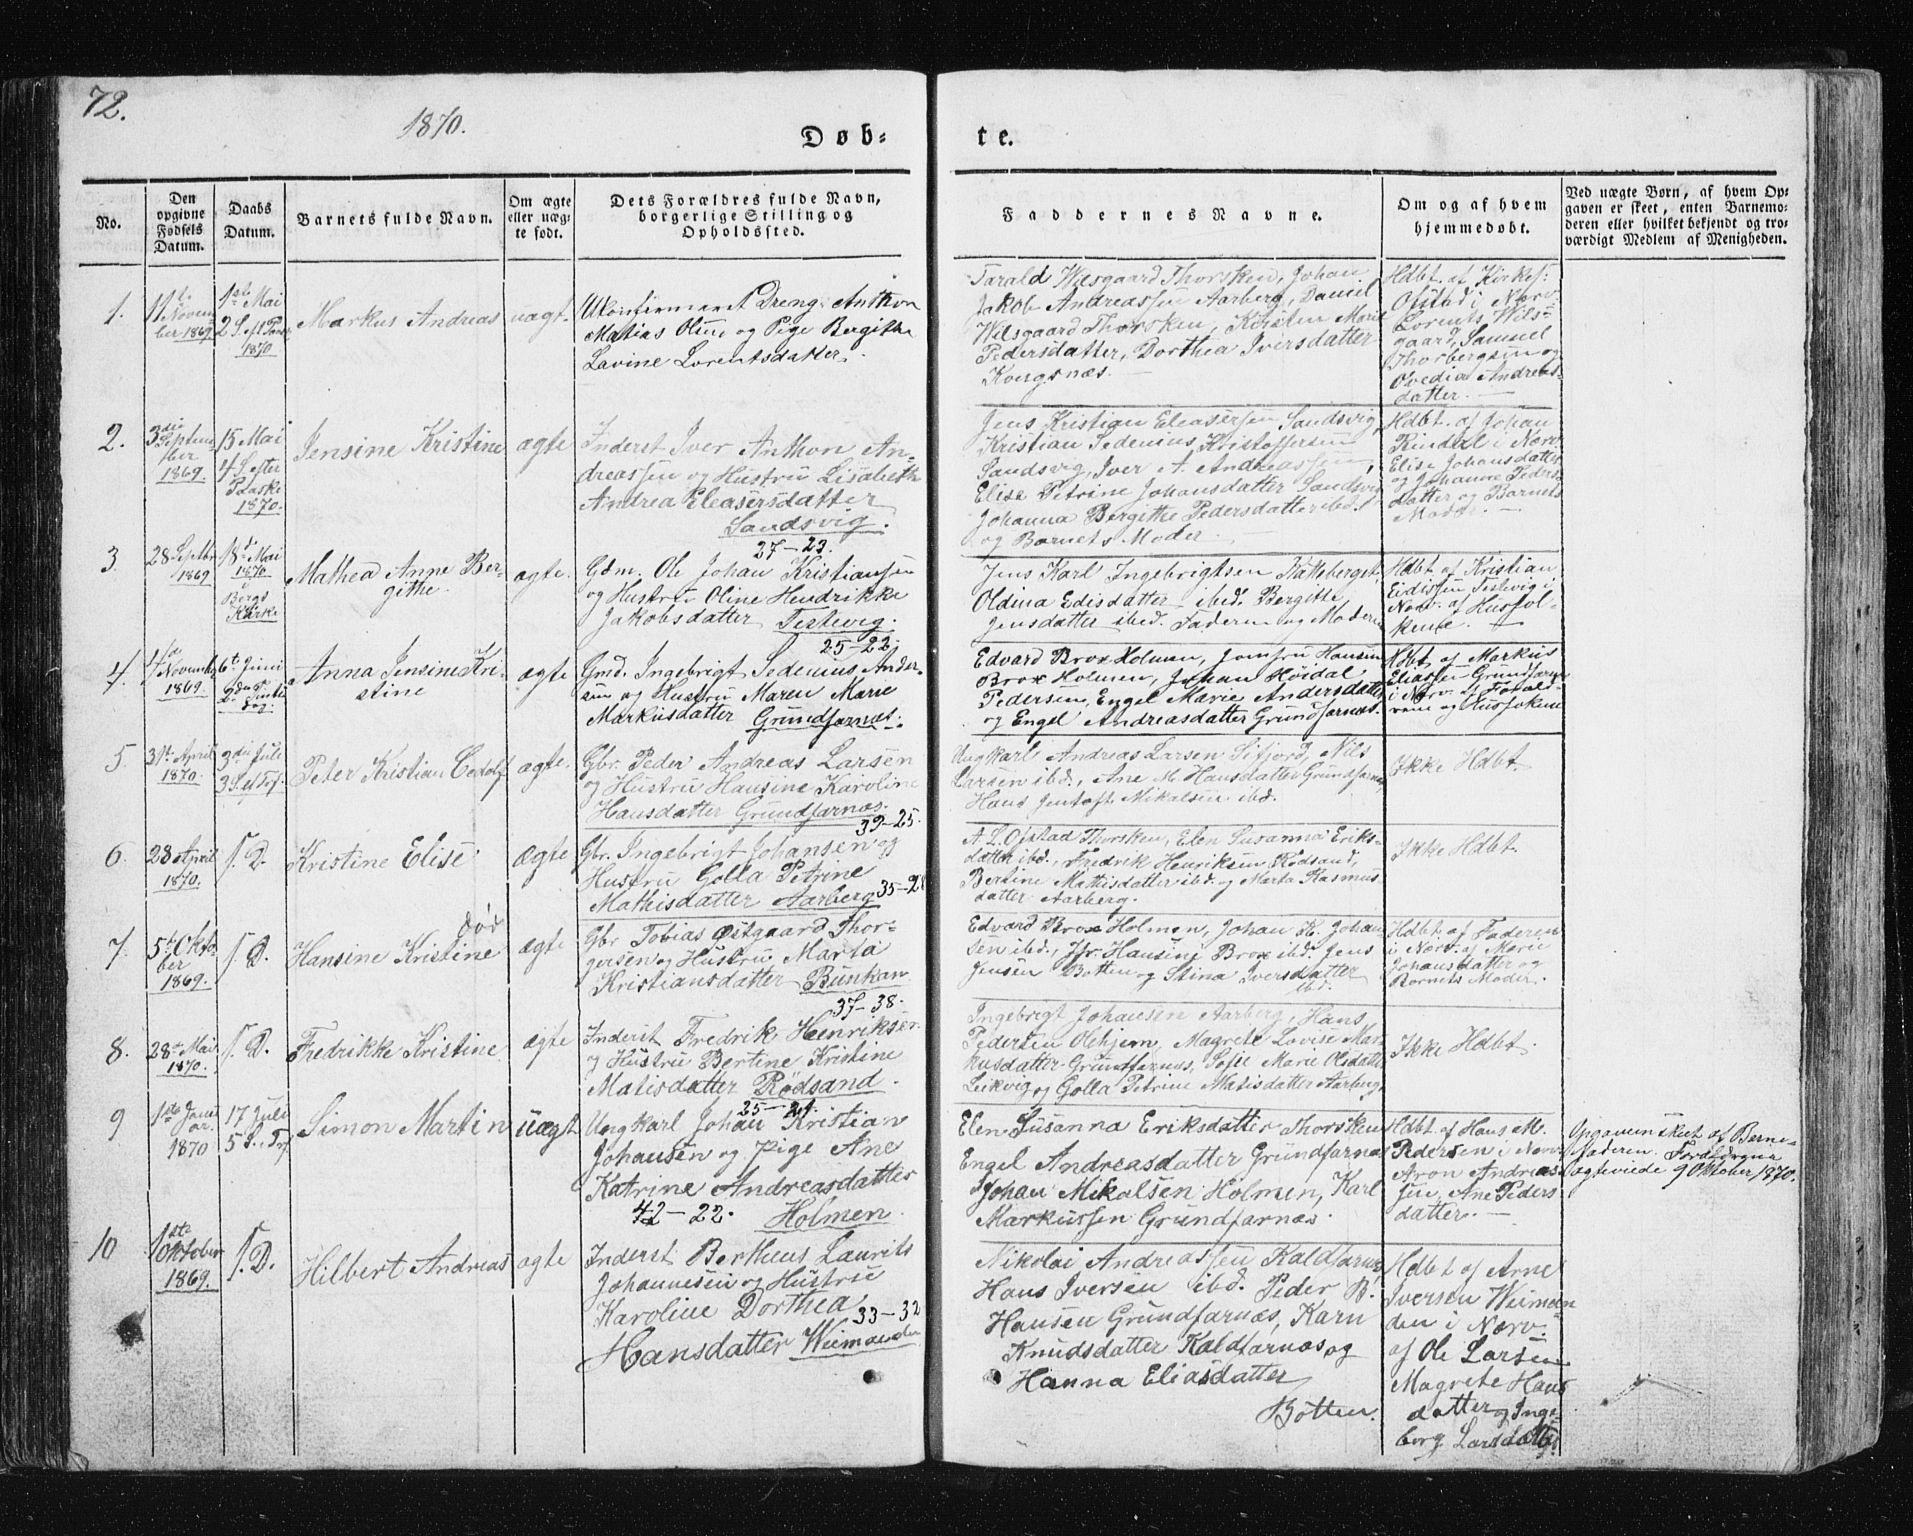 72.
1870.
Døb-
te.
No.
Den opgivne Fødsels Datum.
Daabs Datum.
Barnets fulde Navn.
Om ægte eller uæg-te født.
Dets Forældres fulde Navn, borgerlige Stilling og Opholdssted.
Faddernes Navne.
Om og af hvem hjemmedøbt.
Ved uægte Børn, af hvem Op-gaven er skeet, enten Barnemo-deren eller hvilket bekjendt og tro-værdigt Medlem af Menigheden.
1.
11te Novem-ber 1869
1ste Mai 2 S. eft Paaske 1870
Markus Andreas
uægt.
Ukonfirmeret Dreng Anthon
Matias Olsen og Pige Bergithe
Lavine Lorentsdatter.
Tarald Wilsgaard Thorsken, Johan
Jakob Andreassen Aarberg, Daniel
Wilsgaard Thorsken, Kirsten Marie
Pedersdatter, Dorthea Iversdatter
Kongsnæs.
Hdbt. af Kirkes:
Opstad i Nærv.
Lorents Wils-
gaard, Samuel
Thorbergsen og
Ovedia Andreas-
datter.
2.
3die Septem-ber 1869.
15 Mai 4 S. efter Paaske 1870.
Jensine Kristine
ægte
Inderst Iver Anthon An-
dreassen og Hustru Lisabeth
Andrea Eleasersdatter
Sandsvig.
27-23.
Jens Kristian Eleasersen Sandsvig,
Kristian Sedenius Kristoffersen
Sandsvig, Iver A. Andreassen,
Elise Petrine Johansdatter Sandsvig
Johanna Bergithe Pedersdatter ibd.
og Barnets Moder.
Hdbt. af Johan
Rindal i Nærv.
Elise Johansdatter
og Johanne Peders-
datter og Barnets
Moder.
3
28 Septbr 1869
18d Mai 1870 i Bergs Kirke
Mathea Anne Ber-
githe.
ægte.
Gdm. Ole Johan Kristiansen
og Hustru Oline Hendrikke
Jakobsdatter Teistevig.
25-22.
Jens Karl Ingebrigtsen Kalkeberget,
Oldina Edisdatter ibd. Bergitte
Jensdatter ibd. Faderen og Moderen
Hdbt. af Kristian
Eidissen Teistvig i
Nærv. af Husfol-
kene.
4.
4de Novembr 1869.
6te Juni 2den Pintse dag.
Anna Jensine Kri-
stine
ægte
Gmd. Ingebrigt Sedenius Ander-
sen og Hustru Maren Marie
Markusdatter Grundfarnæs.
Edvard Brox Holmen, Jomfru Hansine
Brox Holmen, Johan Høidal
Pedersen, Engel Marie Andersdatter
og Engel Andreasdatter Grundfarnæs.
Hdbt. af Markus
Eliassen Grundfarnæs
i Nærv. af Foræld-
rene og Husfolkene
5.
3die April 1870.
3die Juli 3 S. ef Tref.
Peter Kristian Cedolf
ægte.
Gbr. Peder Andreas Larsen
og Hustru Hansine Karoline
Hansdatter Grundfarnæs.
39-25.
Ungkarl Andreas Larsen Sifjord, Nils
Larsen ibd., Ane M. Hansdatter Grundfarnæs
Hans Jentoft Mikalsen ibd.
Ikke Hdbt.
6.
28 April 1870.
s. D.
Kristine Elise
ægte
Gbr. Ingebrigt Johansen og
Hustru Golla Petrine
Mathisdatter Aarberg
35-28
A. L. Opstad Thorsken, Elen Susanna Eriks-
datter ibd., Fredrik Henriksen Rødsand,
Bertine Mathisdatter ibd. og Marta Rasmus
datter Aarberg.
Ikke Hdbt.
7.
5te Okto-ber 1869.
s. D.
død
Hansine Kristine
ægte
Gbr Tobias Østgaard Thor-
gersen og Hustru Marta
Kristiansdatter Bunkan
37-38.
Edvard Brox Holmen, Johan K. Johan
sen ibd., Jfr. Hansine Brox ibd. Jens
Jensen Botten og Stina Iversdatter
ibd.
Hdbt. af Faderen
i Nærv. af Marie
Johansdatter og
Barnets Moder.
8.
28de Mai 1870.
s. D.
Fredrikke Kristine
ægte
Inderst Fredrik Henriksen
og Hustru Bertine Kristine
Matisdatter Rødsand.
25-24.
Ingebrigt Johansen Aarberg, Hans
Pedersen Olehjem, Magrete Lovise Mar
kusdatter Grundfarnæs, Sofie Marie Olsdatter
Leikvig og Golla Petrine Matisdatter Aarberg
Ikke Hdbt.
9
1ste Janu ar. 1870
17 Juli 5 S. e. Tref.
Simon Martin
uægt.
Ungkarl Johan Kristian
Johansen og Pige Ane
Katrine Andreasdatter
42-22. Holmen.
Elen Susanna Eriksdatter Thorsken
Engel Andreasdatter Grundfarnæs
Johan Mikalsen Holmen, Karl
Markussen Grundfarnæs.
Hdbt. af Hans M.
Pedersen i Nærv.
Aron Andreas-
sen, Ane Peders
datter.
Opgaven skeet af Barne-
faderen. Forældrene
ægteviede 9 Oktober 1870.
10
1ste Oktober 1869.
s. D.
Hilbert Andreas
ægte
Inderst Bertheus Laurits
Johannesen og Hustru
Karoline Dorthea
33-32
Hansdatter Weimanden
Nikolai Andreassen Kaldfarnæs
Hans Iversen ibd. Peder B.
Hansen Grundfarnæs, Karn
Knudsdatter Kaldfarnæs og
Hanna Eliasdatter
Botten.
Hdbt. af Arne
Iversen Weiman
den i Nærv.
af Ole Larsen
Magrete Hans
datter og Inge-
borg Larsdatter